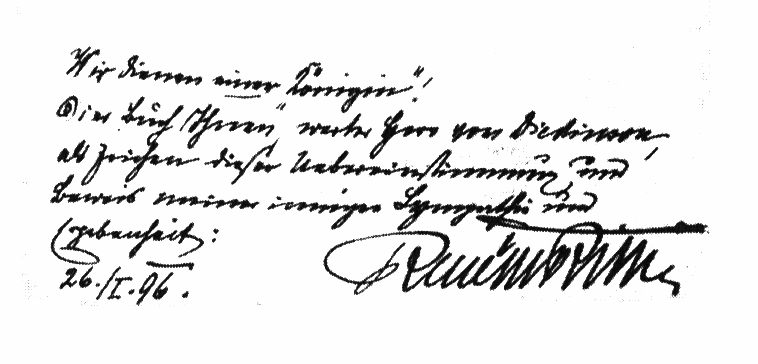 Wir dienen einer Königin"!
Dies Buch Ihnen" werter Herr von Dickinson,
als Zeichen dieser Uebereinstimmung und
Beweis meiner innigen Sympathie und
Ergebenheit:
26./I.96. René Maria Rilke